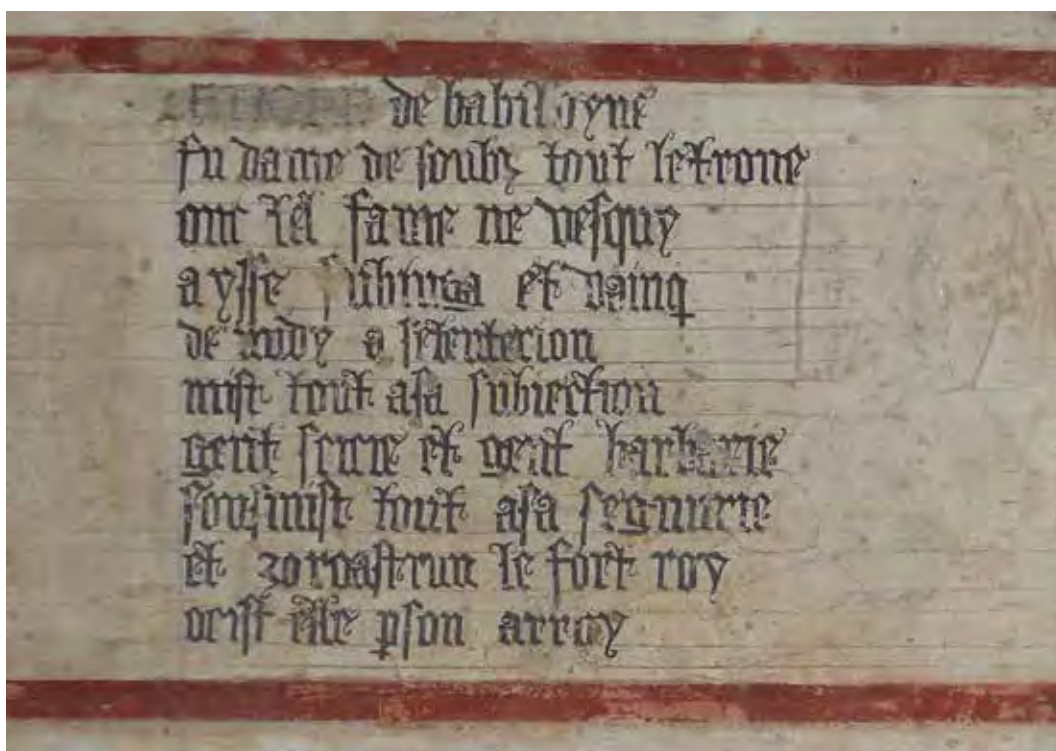 de babiloyne
fu dame de soubz tout letrone
onc tel fame ne vesquy
aysse subiuga et vainq
de mydy a setenterion
mist tout asa subiection
gent scicie et gent barbarie
sousmist tout asa segnurie
et zoroastrun le fort roy
ocist elle pson arroy